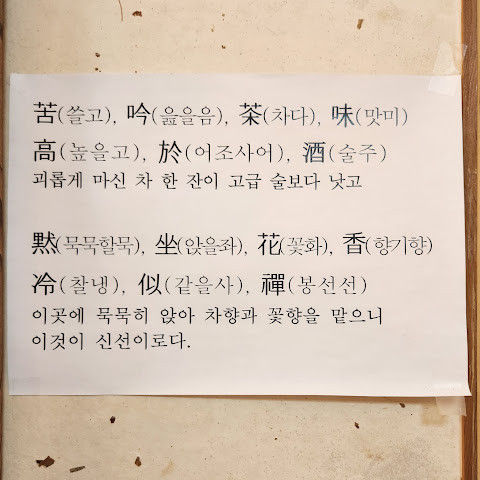 苦(쓸고), 吟(읊을음), 茶(차다), 味(맛미)
高(높을고), 於(어조사어), 酒(술주)
괴롭게 마신 차 한 잔이 고급 술보다 낫고
黙(묵묵할묵), 坐(앉을좌), 花(꽃화), 香(향기향)
冷(찰냉), 似(같을사), 禪(봉선선)
이곳에 묵묵히 앉아 차향과 꽃향을 맡으니
이것이 신선이로다.